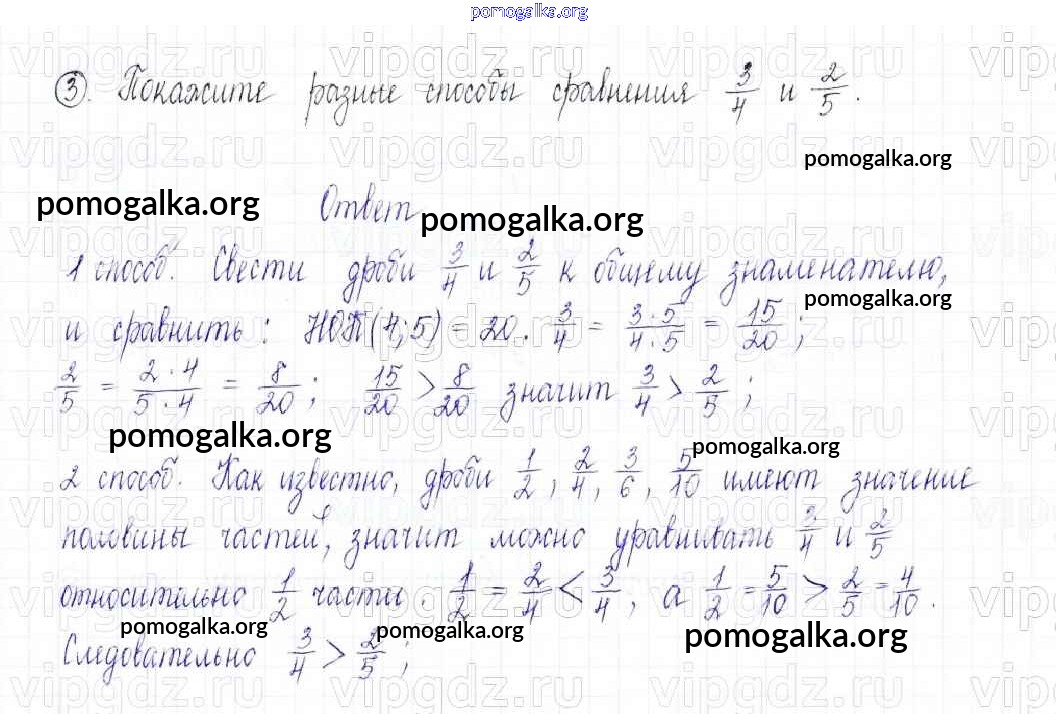 pomogalka.org
③. Покажите разные способы сравнения 3/4 и 2/5.
pomogalka.org
pomogalka.org Ответ pomogalka.org
1 способ. Свести дроби 3/4 и 2/5 к общему знаменателю,
pomogalka.org
и сравнить: НОК(4;5) = 20. 3/4 = 3·5/4·5 = 15/20;
2/5 = 2·4/5·4 = 8/20; 15/20 > 8/20 значит 3/4 > 2/5;
pomogalka.org pomogalka.org
2 способ. Как известно, дроби 1/2, 2/4, 3/6, 5/10 имеют значение
половины частей, значит можно уравнивать 3/4 и 2/5
относительно 1/2 части. 1/2 = 2/4 < 3/4, а 1/2 = 5/10 > 2/5 = 4/10.
pomogalka.org pomogalka.org pomogalka.org
Следовательно 3/4 > 2/5;
vipgdz.ru